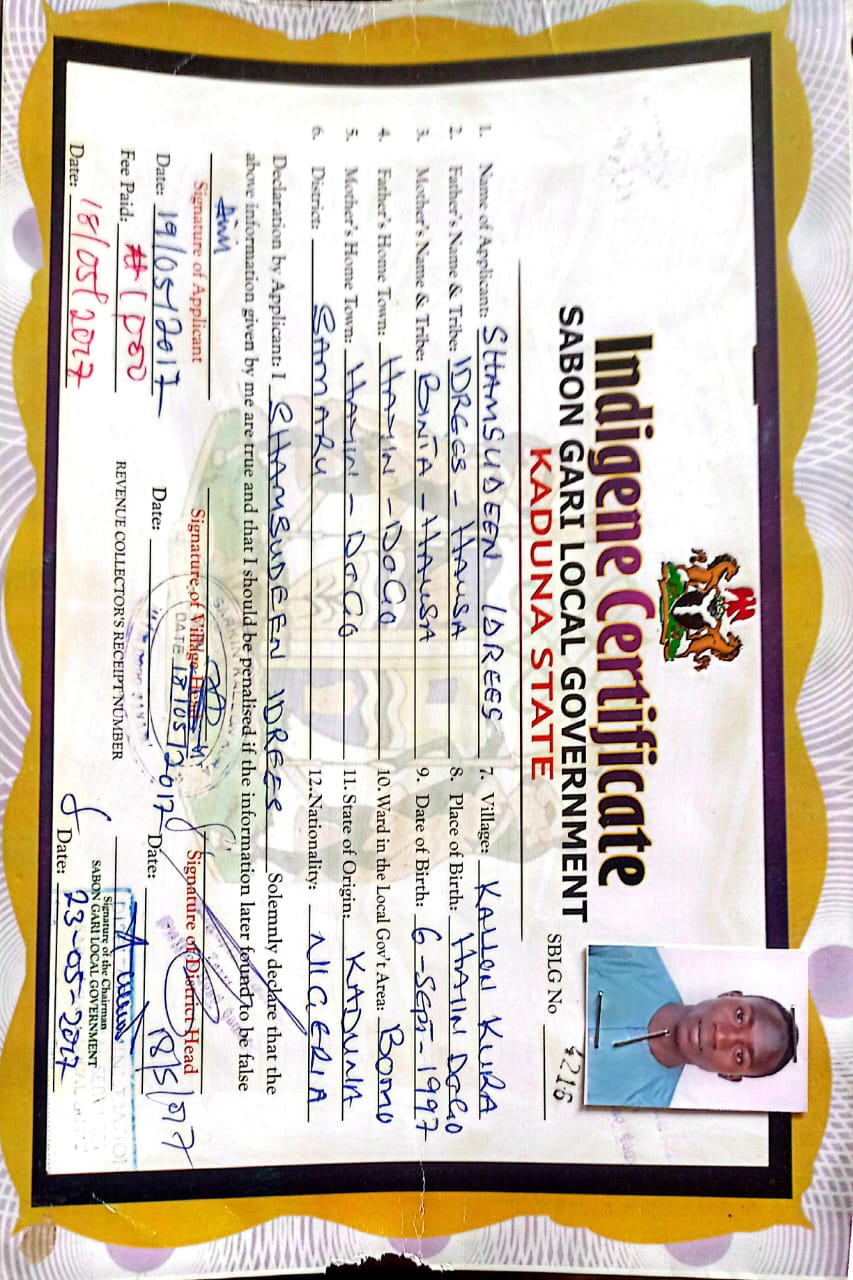 Indigene Certificate
SABON GARI LOCAL GOVERNMENT
KADUNA STATE
SBLG No 4216
1. Name of Applicant: SHAMSUDEEN IDREES
2. Father's Name & Tribe: IDREES - HAUSA
3. Mother's Name & Tribe: BINTA - HAUSA
4. Father's Home Town: HAYIN - DOGO
5. Mother's Home Town: HAYIN - DOGO
6. District: SAMARU
7. Village: KALLON KURA
8. Place of Birth: HAIIN DOGO
9. Date of Birth: 6-SEPT-1997
10. Ward in the Local Gov't Area: BOMO
11. State of Origin: KADUNA
12. Nationality: NIGERIA
Declaration by Applicant: I SHAMSUDEEN IDREES Solemnly declare that the
above information given by me are true and that I should be penalised if the information later found to be false
Signature of Applicant
Date: 19/05/2017
Signature of Village Head
DATE 18/05/2017
Date:
Signature of District Head
Date: 18/5/017
Fee Paid: #1000
Date: 18/05/2017
REVENUE COLLECTOR'S RECEIPT NUMBER
Signature of the Chairman
SABON GARI LOCAL GOVERNMENT
Date: 23-05-2017